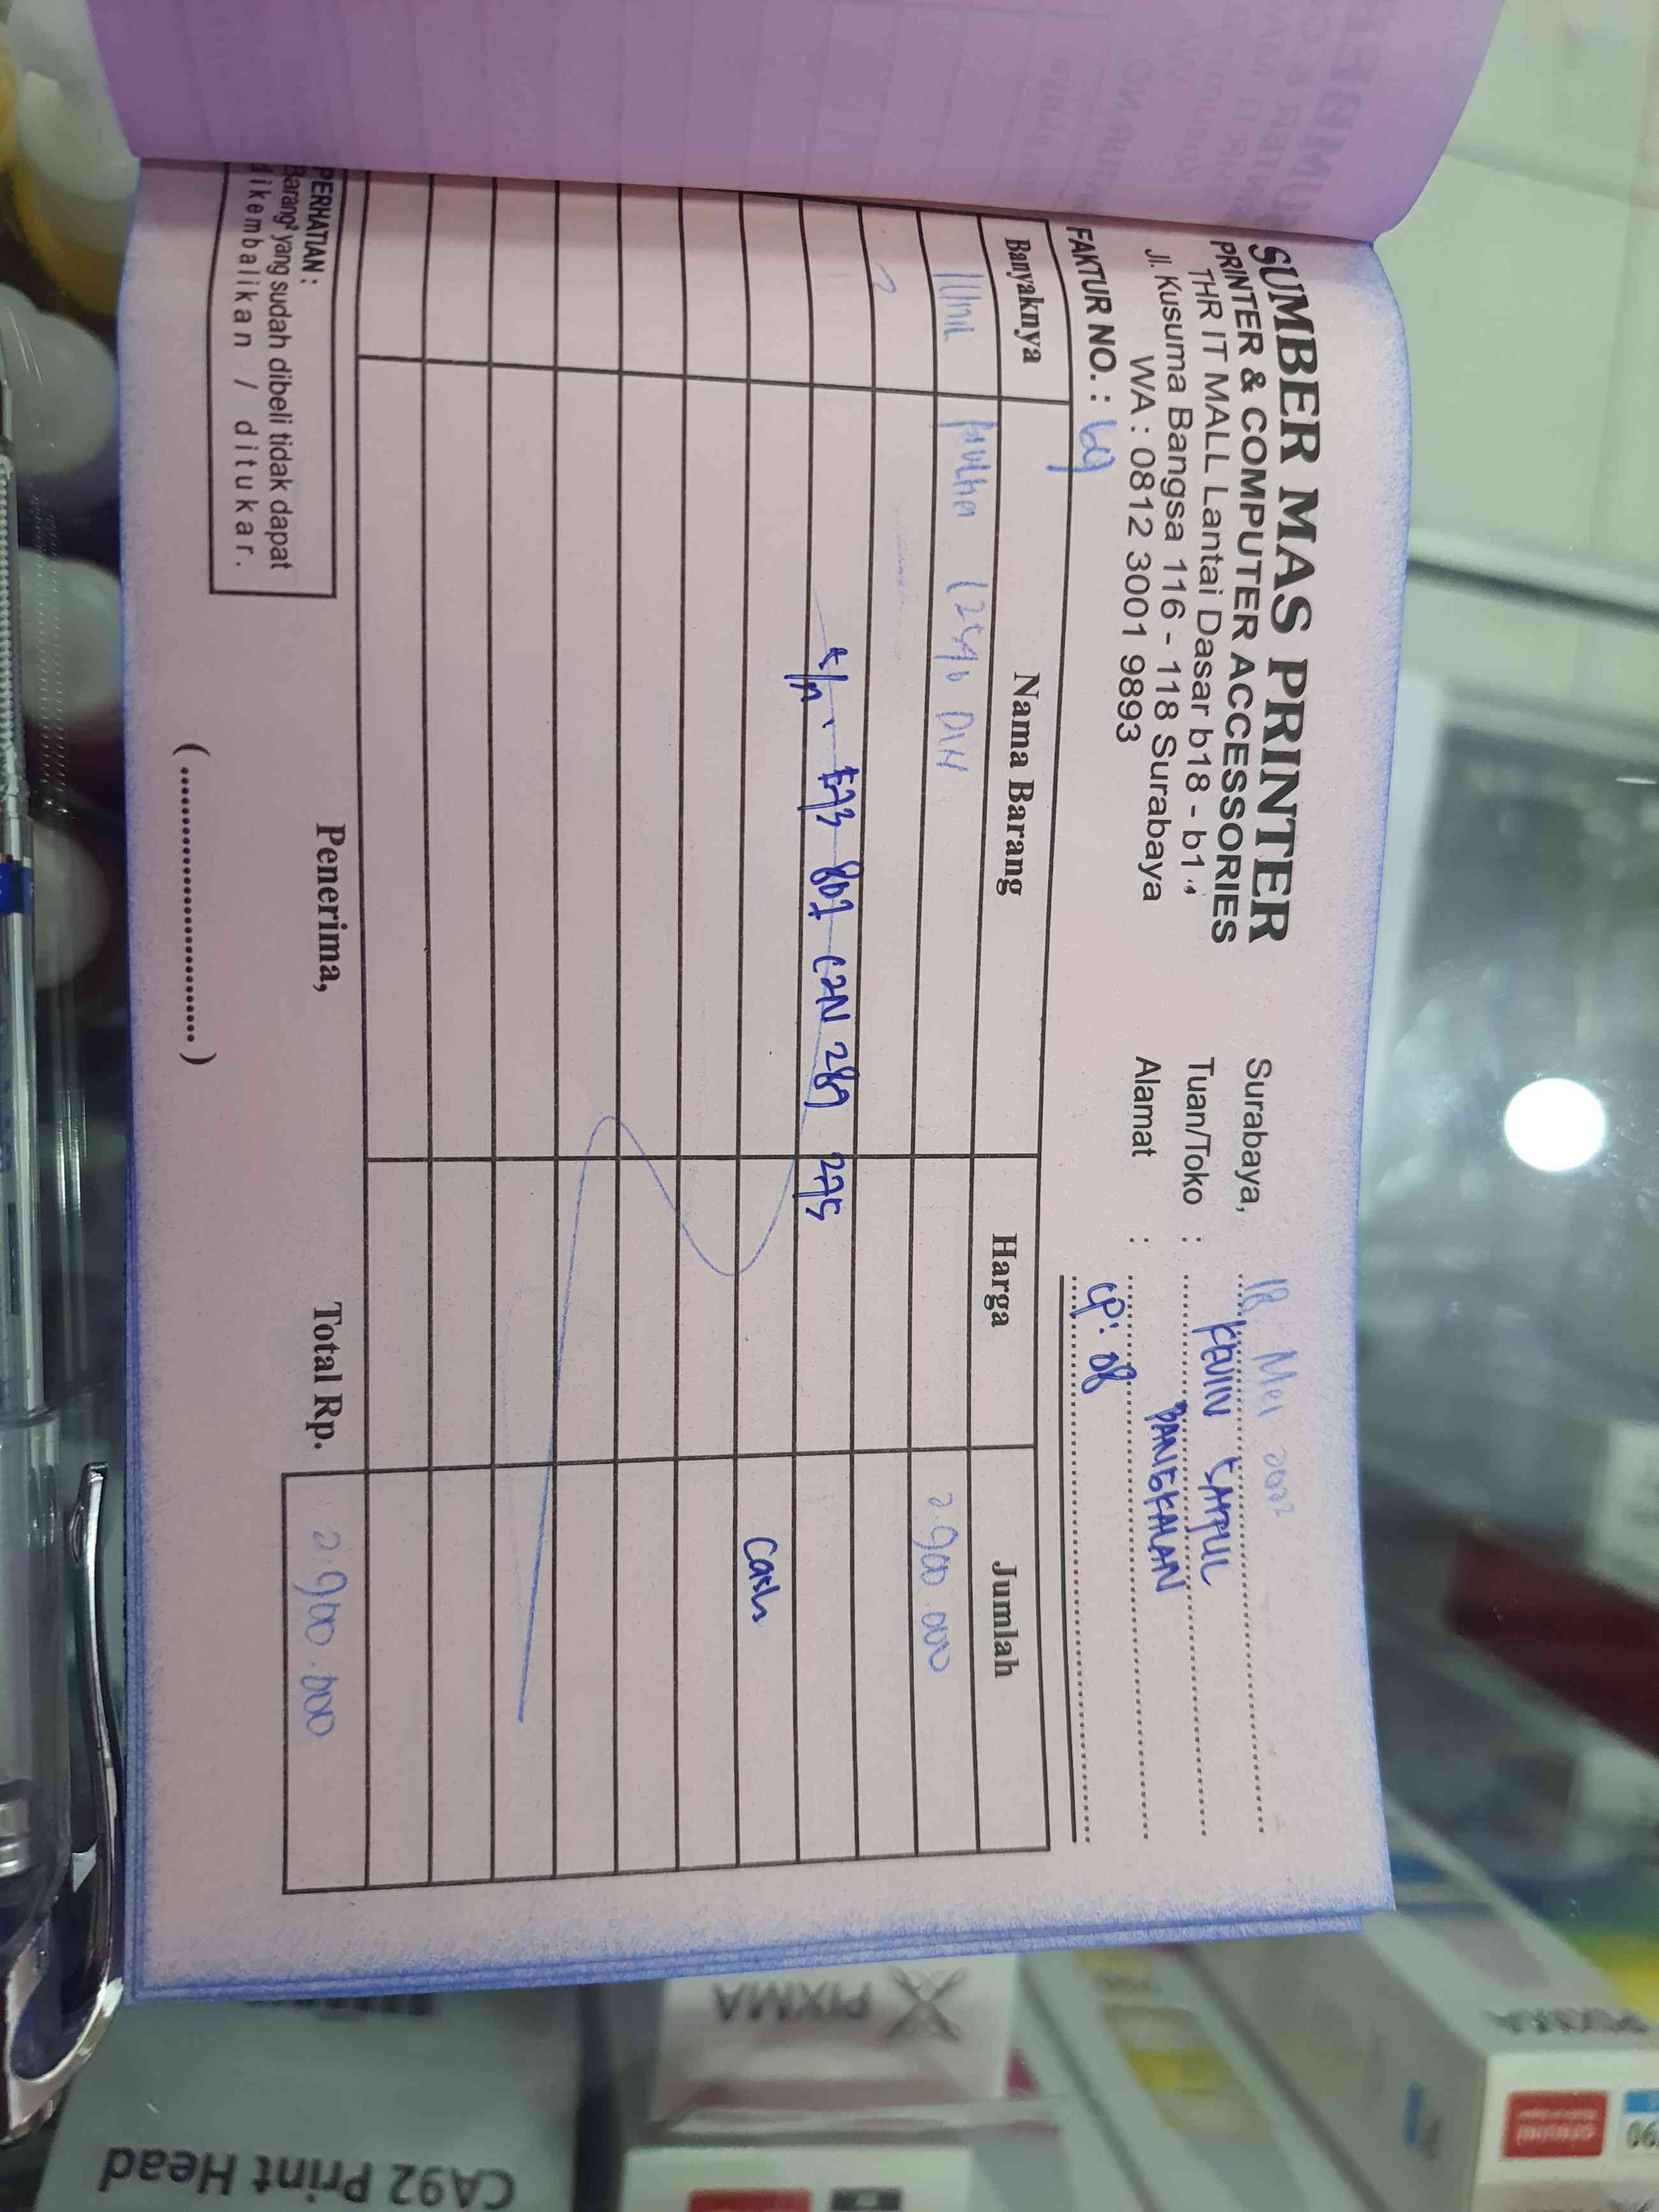 SUMBER MAS PRINTER
PRINTER & COMPUTER ACCESSORIES
THR IT MALL Lantai Dasar b18 - b1
Jl. Kusuma Bangsa 116 - 118 Surabaya
WA : 0812 3001 9893
Surabaya, 18 Mei 2022
Tuan/Toko : KEVIN
Alamat : BANGKALAN
CP: 08
FAKTUR NO. :
Banyaknya Nama Barang Harga Jumlah
1 Unit DW 2.900.000
S/N : E73 807 C2N 289 275
Cash
PERHATIAN :
Barang² yang sudah dibeli tidak dapat
dikembalikan / ditukar.
Penerima,
(........................)
Total Rp. 2.900.000
PIXMA
PIXMA
CA92 Print Head